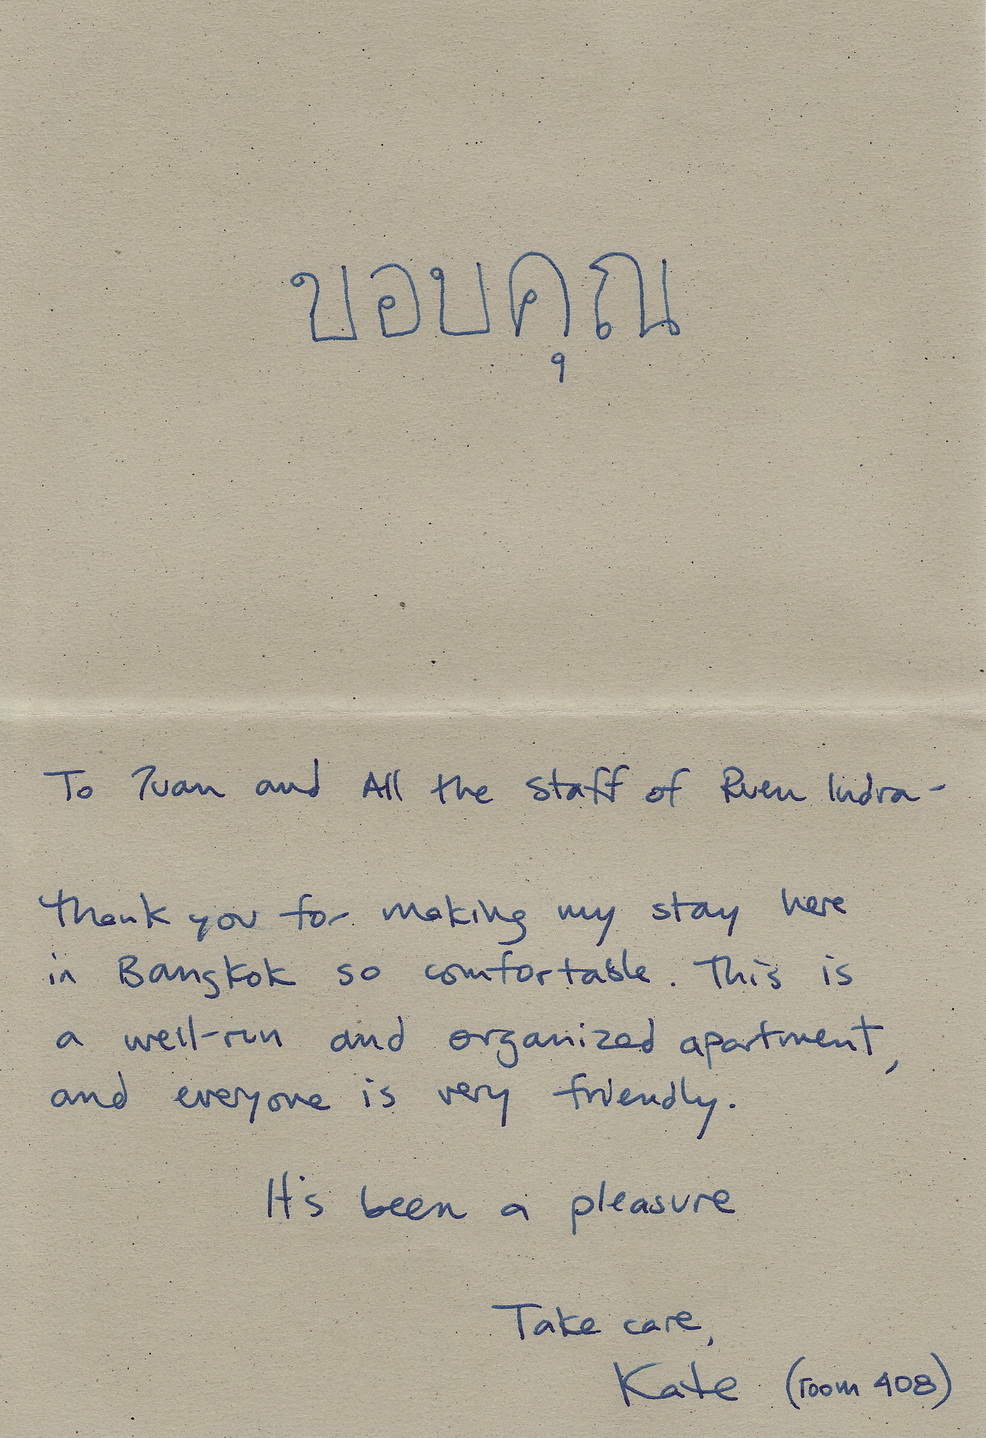 ขอบคุณ
To and All the staff of Ruen Indra-
Thank you for making my stay here
in Bangkok so comfortable. This is
a well-run and organized apartment,
and everyone is very friendly.
It's been a pleasure
Take care,
Kate (room 408)